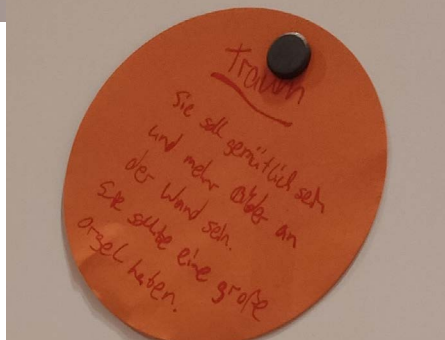 Traum
Sie soll gemütlich sein
und mehr Bilder an
der Wand sein.
Sie sollte eine große
orgel haten.